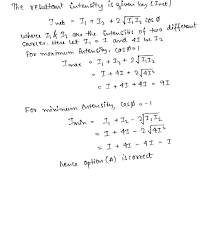 The resultant intensity is given by (Inet)
Inet = I₁ + I₂ + 2√I₁I₂ cosø
where I₁ & I₂ are the intensities of two different
Here let I₁ = I and 4I be I₂
For maximum Intensity, cosø = 1
Imax = I₁ + I₂ + 2√I₁I₂
= I + 4I + 2√4I²
= I + 4I + 4I = 9I
For minimum Intensity, cosø = -1
Imin = I₁ + I₂ - 2√I₁I₂
= I + 4I - 2√4I²
= I + 4I - 4I = I
hence option (A) is correct